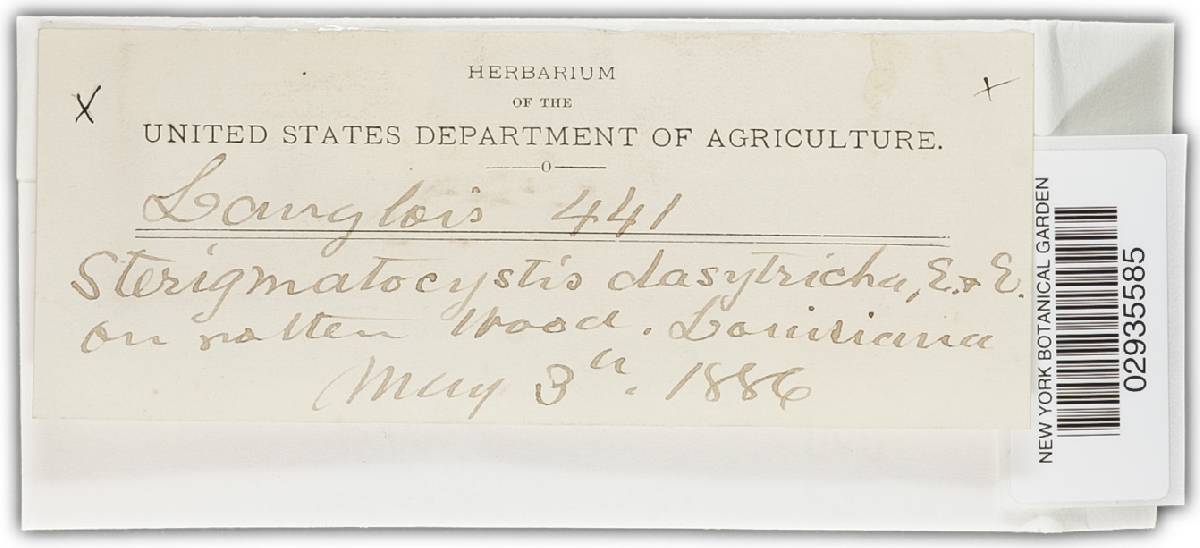 HERBARIUM
OF THE
UNITED STATES DEPARTMENT OF AGRICULTURE.
Langlois 441
Sterigmatocystis dasytricha, E. & E.
on rotten Wood. Louisiana
May 3d. 1886
X
+
NEW YORK BOTANICAL GARDEN
02935585